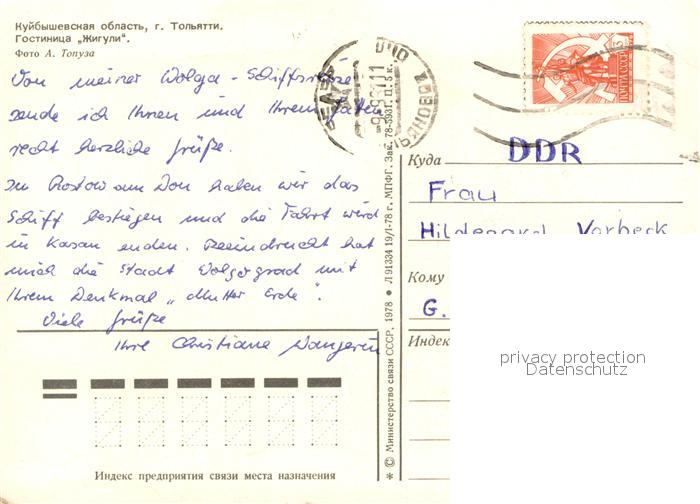 Куйбышевская область, г. Тольятти.
Гостиница „Жигули".
Фото А. Топуза
Von meiner Wolga-Schiffsreise
sende ich Ihnen und Ihrem Gatten
recht herzliche Grüße.
In Rostow am Don haben wir das
Schiff bestiegen und die Fahrt wird
in Kasan enden. Beeindruckt hat
mich die Stadt Wolgograd mit
Ihrem Denkmal „Mutter Erde".
Viele Grüße
Ihre Christiane
Индекс предприятия связи места назначения
* © Министерство связи СССР. 1978 • Л 91334 19/I-78 г. МПФГ. Зак. 78-5931. Ц. 5 к.
ПОЧТА СССР
Куда
DDR
Frau
Hildegard Vorbeck
Кому
G.
Индекс
privacy protection
Datenschutz